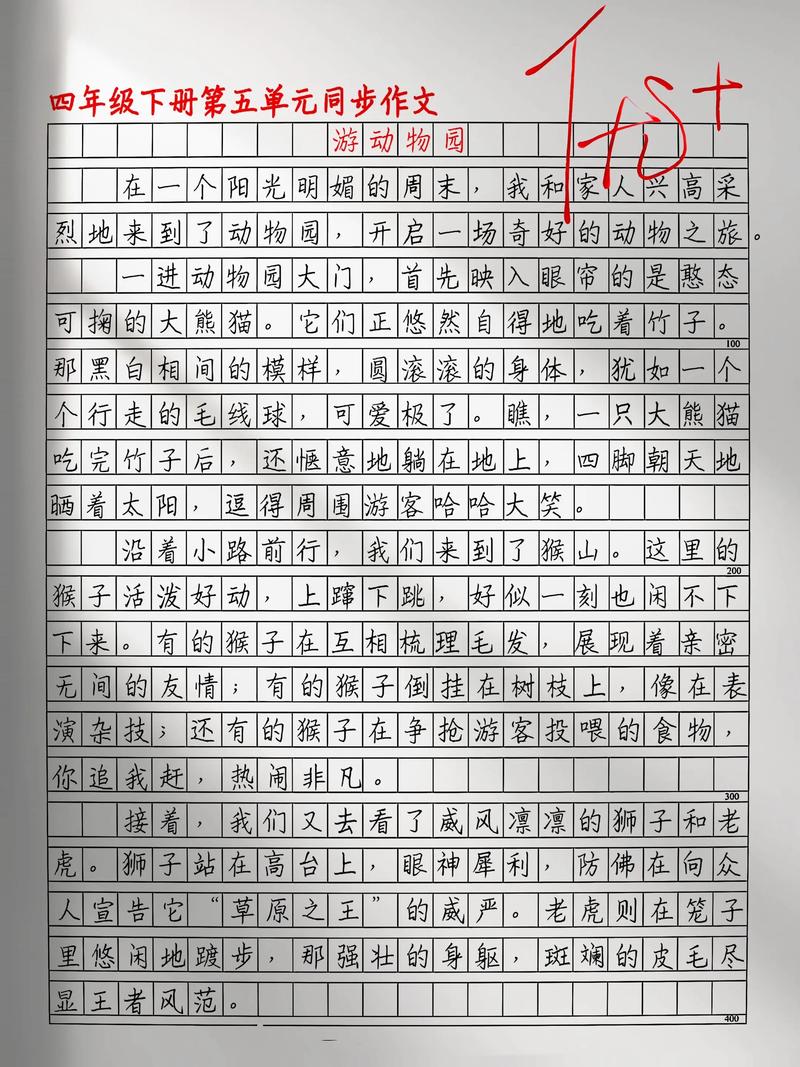 四年级下册第五单元同步作文
优+
游动物园
在一个阳光明媚的周末，我和家人兴高采
烈地来到了动物园，开启一场奇好的动物之旅。
一进动物园大门，首先映入眼帘的是憨态
可掬的大熊猫。它们正悠然自得地吃着竹子。
100
那黑白相间的模样，圆滚滚的身体，犹如一个
个行走的毛线球，可爱极了。瞧，一只大熊猫
吃完竹子后，还惬意地躺在地上，四脚朝天地
晒着太阳，逗得周围游客哈哈大笑。
沿着小路前行，我们来到了猴山。这里的
200
猴子活泼好动，上蹿下跳，好似一刻也闲不下
下来。有的猴子在互相梳理毛发，展现着亲密
无间的友情；有的猴子倒挂在树枝上，像在表
演杂技；还有的猴子在争抢游客投喂的食物，
你追我赶，热闹非凡。
300
接着，我们又去看了威风凛凛的狮子和老
虎。狮子站在高台上，眼神犀利，防佛在向众
人宣告它“草原之王”的威严。老虎则在笼子
里悠闲地踱步，那强壮的身躯，斑斓的皮毛尽
显王者风范。
400